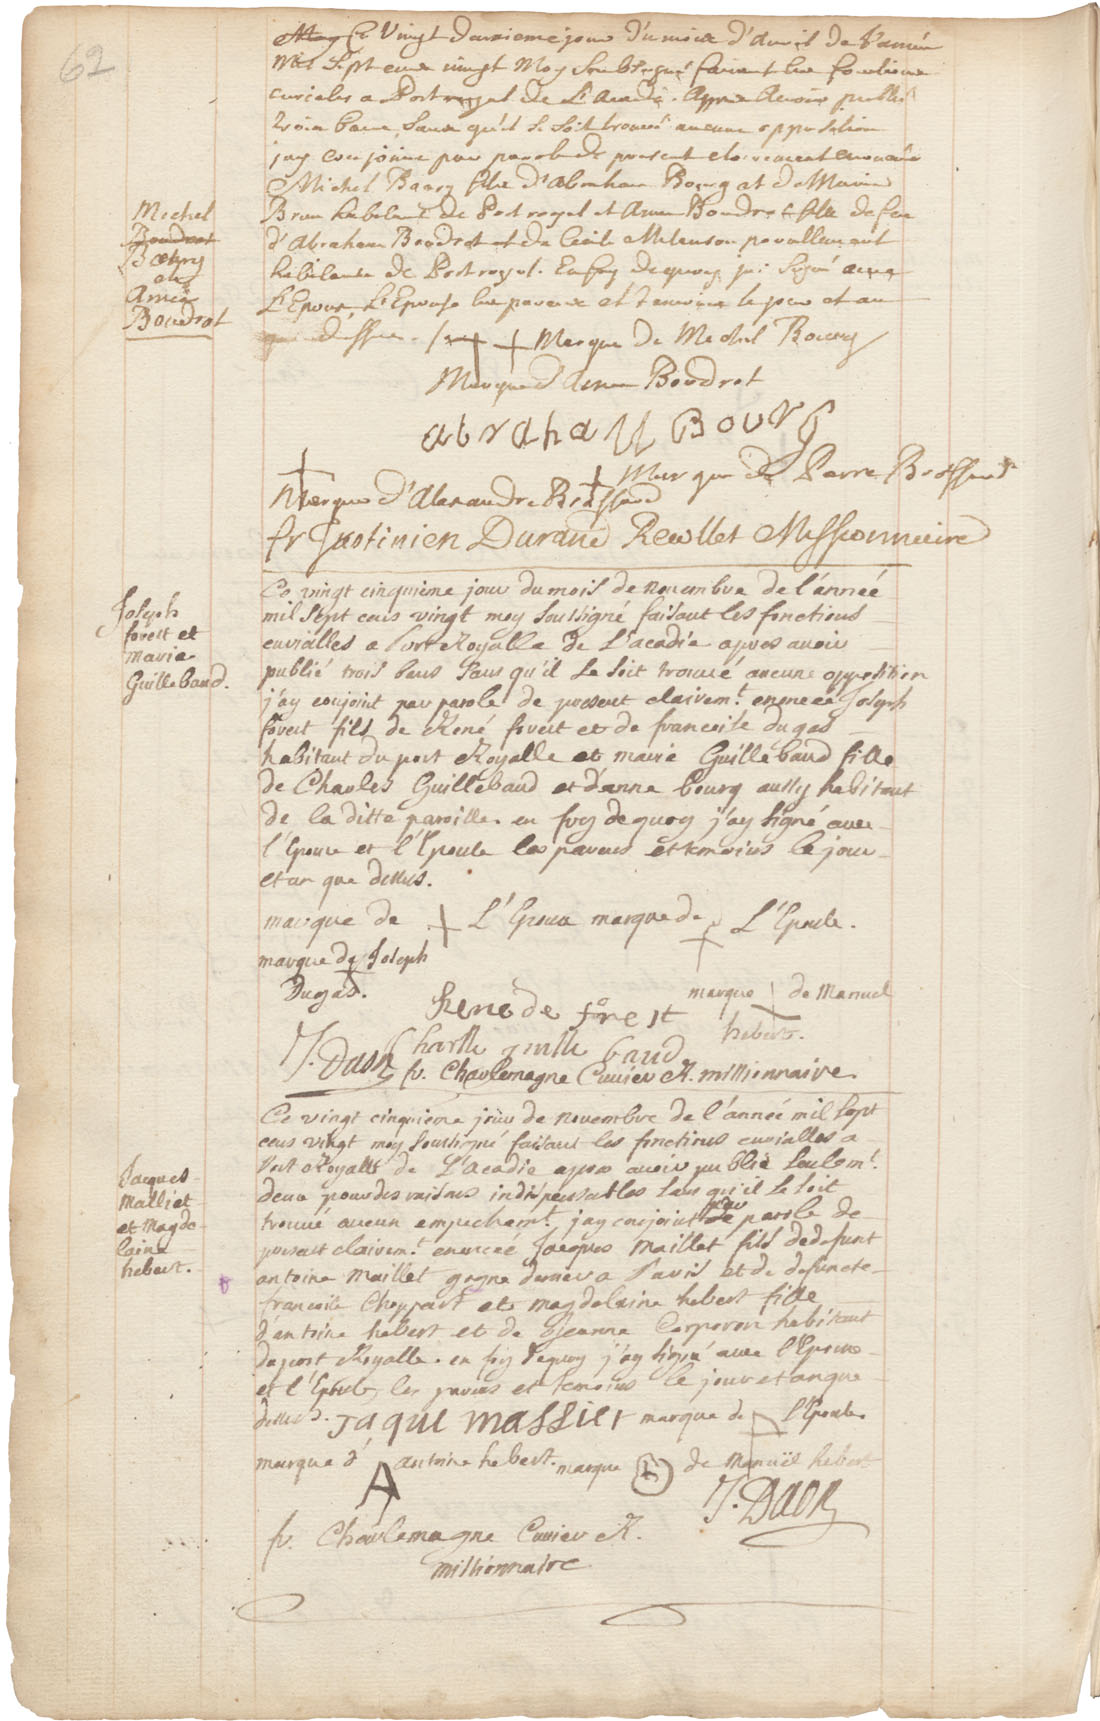 62
Ce Vingt deuxieme jour du mois d'avril de l'année
Mil Sept cens vingt Moy Soubsigné faisant les fonctions
curiales a Port royal de L'Acadie. Apres avoir publié
trois bans, Sans qu'il se soit trouvé aucune opposition
jay conjoint par parole de present clairement enoncée
Michel Bourg fils d'Abraham Bourg et de Marie
Brun habitant de Port royal et Anne Boudrot fille de feu
d'Abraham Boudrot et de Cecile Melenson pareillement
habitants de Port royal. En foy de quoy jai Signé avec
L'Epoux, L'Epouse les parens et temoins le jour et an
que dessus. Marque de Michel Bourg
Marque d'Anne Boudrot
abraham BOURG
Marque de Pierre Brossard
Marque d'Alexandre Brossard
fr Justinien Durand Recollet Missionnaire
Michel
Boudrot
Bourg
et
Anne
Boudrot
Joseph
forest et
Marie
Guillebaud.
Ce vingt cinquieme jour du mois de novembre de l'année
mil sept cens vingt moy soussigné faisant les fonctions
curialles a Port Royalle de L'acadie apres avoir
publié trois bans sans qu'il se soit trouvé aucune opposition
j'ay conjoint par parole de present clairemt. enoncée Joseph
forest fils de René forest et de francoise dugas
habitant du port Royalle et marie Guillebaud fille
de Charles Guillebaud et d'anne bourg aussy habitant
de la ditte paroisse. en foy de quoy j'ay signé avec
l'Epoux et l'Epouse les parens et temoins le jour
et an que dessus.
marque de L'Epoux marque de L'Epouse.
marque de Joseph
Dugas.
Rene de forest
marque de Manuel
hebert.
Charlle guille baud
J. Daon fr. Charlemagne Cuvier R. missionnaire.
Jacques
Malliet
et Magde
laine
hebert.
Ce vingt cinquieme jour de novembre de l'année mil sept
cens vingt moy soussigné faisant les fonctions curialles a
Port Royalle de L'acadie apres avoir publié seulemt.
deux pour des raisons indispensables sans qu'il se soit
trouvé aucun empechemt. j'ay conjoint par de parole de
present clairemt. enoncée Jacques Maillet fils de defunt
antoine Maillet gagne denier a Paris et de defuncte
francoise Choppart et magdelaine hebert fille
d'antoine hebert et de Jeanne Corporon habitant
du port Royalle. en foy de quoy j'ay signé avec l'Epoux
et l'Epouse, les parens et temoins le jour et an que
dessus. Jaque massiet marque de l'Epouse.
marque d' antoine hebert. marque de Manuël hebert
J. Daon
fr. Charlemagne Cuvier R.
missionnaire